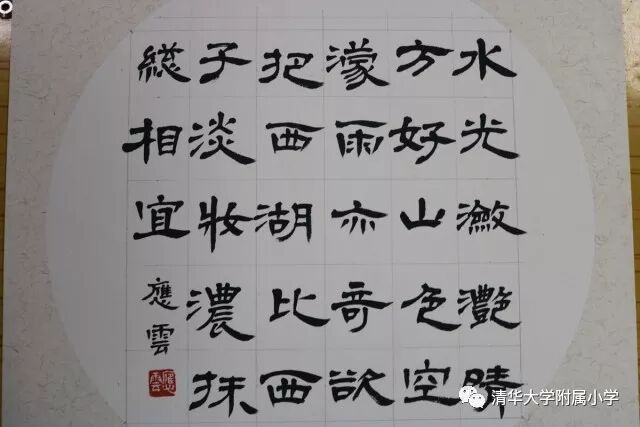 水光瀲灧晴
方好山色空
濛雨亦奇欲
把西湖比西
子淡妝濃抹
總相宜
應雲
清华大学附属小学